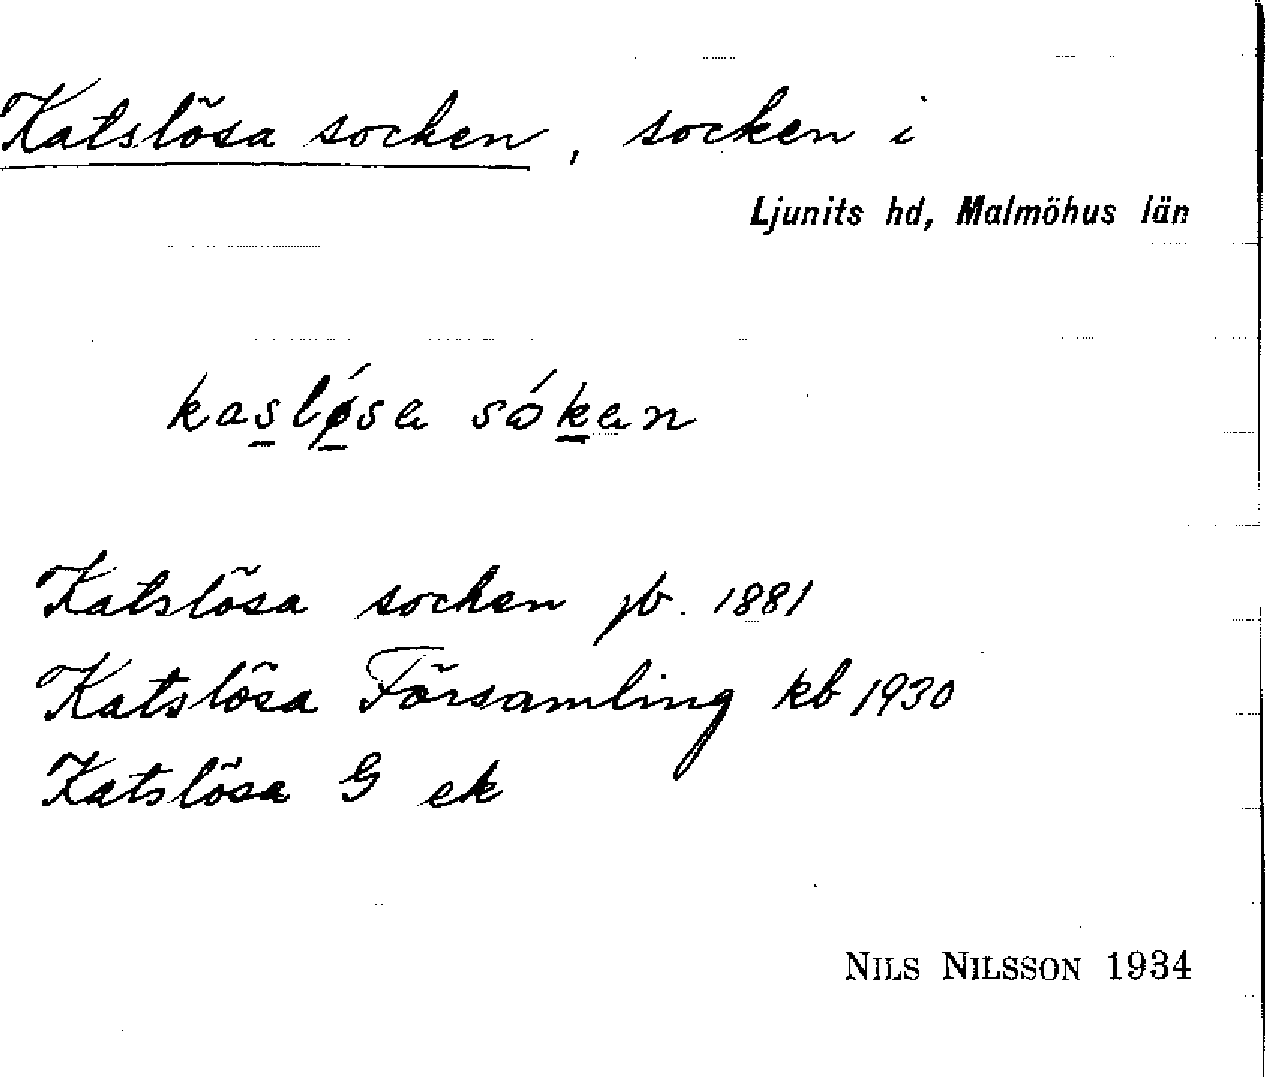 Katslösa socken, socken i
Ljunits hd, Malmöhus län
kasløsa sóken
Katslösa socken jb. 1881
Katslösa Församling kb 1930
Katslösa G ek
NILS NILSSON 1934